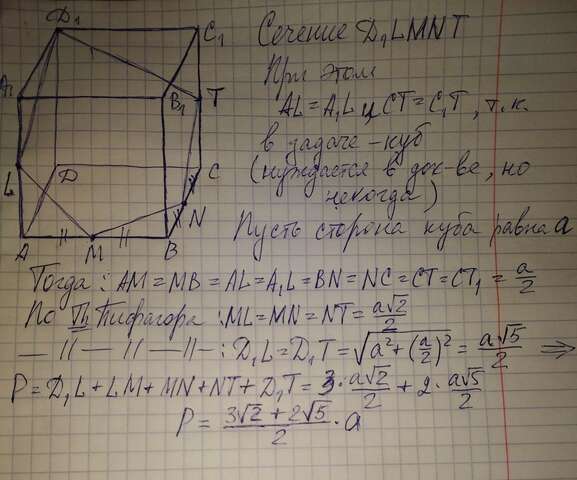 Сечение D₁LMNT
При этом
AL = A₁L и CT = C₁T, т.к.
в задаче - куб
(нуждается в док-ве, но
некогда)
Пусть сторона куба равна a
Тогда: AM = MB = AL = A₁L = BN = NC = CT = CT₁ = a/2
По Т. Пифагора: ML = MN = NT = a√2/2
— 〃 — 〃 — 〃 — : D₁L = D₁T = √(a² + (a/2)²) = a√5/2 ⇒
P = D₁L + LM + MN + NT + D₁T = 3 · a√2/2 + 2 · a√5/2
P = (3√2 + 2√5)/2 · a
D₁
C₁
A₁
B₁
T
L
D
C
N
A
M
B